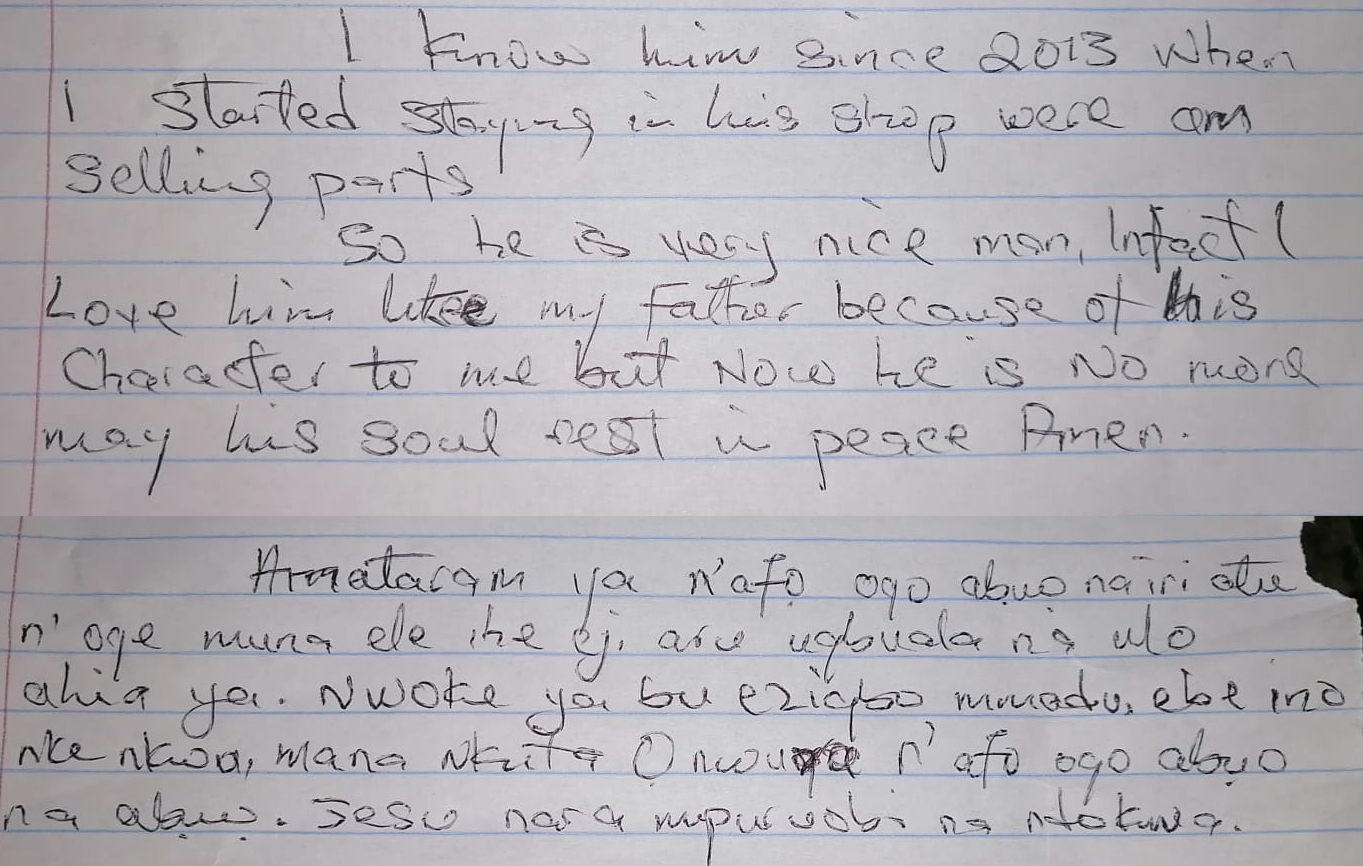 I know him since 2013 when
I started staying in his shop were am
selling parts
So he is very nice man, Infact I
Love him like my father because of his
Character to me but Now he is No more
may his soul rest in peace Amen.
Amataram ya n'afọ ogo abuo na iri atu
n'oge muna ele ihe eji aru ugbuala na ulo
ahia ya. Nwoke ya bu ezigbo mmadu, ebe ino
nke nkwa, mana Nkita O n'afo ogo abuo
na abuo. Jesu nara mpuruobi na ntokwa.